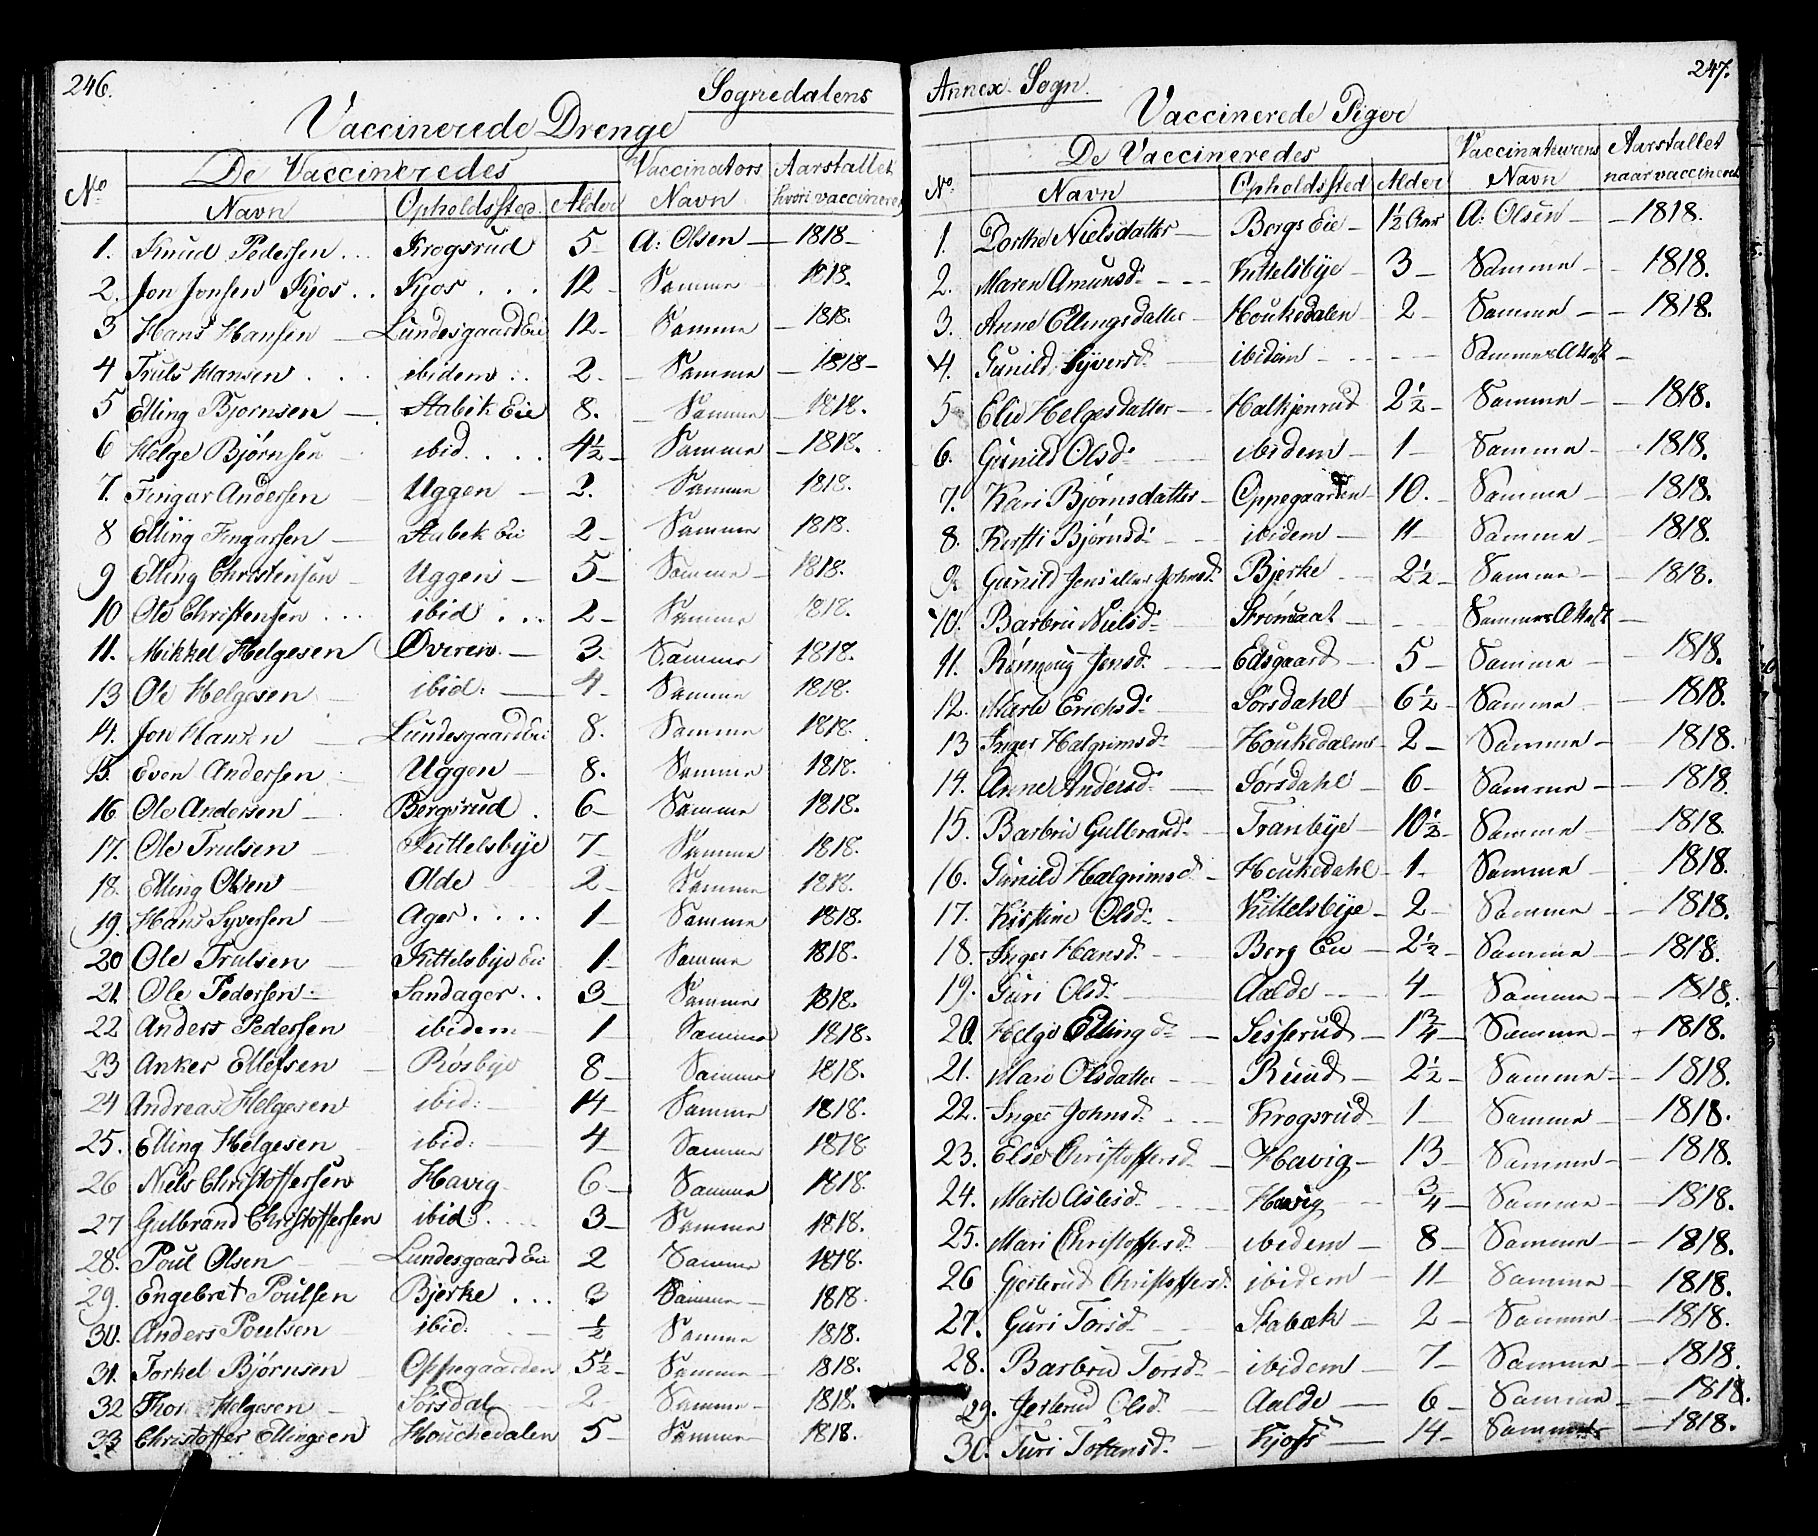 246.
Sognedalens
Vaccinerede Drenge
No De Vaccineredes Vaccinators Aarstallet
Navn Opholdssted Alder Navn hvori vaccineret
1. Knud Pedersen Krogsrud 5 A: Olsen 1818
2. Jon Jonsen Kjos Kjos 12 Samme 1818.
3 Hans Hansen Lundesgaard Eie 12 Samme 1818.
4 Truls Hansen ibidem 2 Samme 1818
5 Elling Bjørnsen Stabek Eie 8. Samme 1818.
6 Helge Bjørnsen ibid. 4½ Samme 1818.
7. Fingar Andersen Uggen 2. Samme 1818.
8 Elling Fingarsen Stabek Eie 2 Samme 1818.
9 Elling Christensen Uggen 5 Samme 1818.
10 Ole Christensen ibid 2 Samme 1818.
11. Mikkel Helgesen Øveren 3. Samme 1818.
13 Ole Helgesen ibid: 4 Samme 1818.
14. Jon Hansen Lundesgaard Eie 8. Samme 1818.
15. Even Andersen Uggen 8. Samme 1818.
16 Ole Andersen Bergsrud 6 Samme 1818.
17. Ole Trulsen Kittelsbye 7 Samme 1818.
18. Elling Olsen Olde 2 Samme 1818.
19. Hans Syversen Ager 1 Samme 1818.
20 Ole Trulsen Kittelsbye Eie 1 Samme 1818.
21. Ole Pedersen Sandager 3 Samme 1818.
22 Anders Pedersen ibidem 1 Samme 1818.
23 Anker Ellefsen Røsbye 8 Samme 1818.
24 Andreas Helgesen ibid: 14 Samme 1818.
25. Elling Helgesen ibid: 4 Samme 1818
26 Niels Christoffersen Havig 6 Samme 1818.
27 Gulbrand Christoffersen ibid: 3 Samme 1818.
28. Poul Olsen Lundesgaard Eie 2 Samme 1818.
29. Engebret Poulsen Bjerke 3 Samme 1818.
30. Anders Poulsen ibid: ½ Samme 1818.
31. Torkel Bjørnsen Oppegaarden 5½ Samme 1818.
32 Thor Helgesen Sørsdal 2 Samme 1818.
33 Christoffer Ellingsen Houchedalen 5 Samme 1818.
247.
Annex Sogn.
Vaccinerede Piger
No. De Vaccineredes Vaccinateurens Aarstallet
Navn Opholdssted Alder Navn naar vaccineret
1. Dorthe Nielsdatter Bergs Eie 1½ Aar A: Olsen 1818.
2. Maren Amunsd: Kittelsbye 3 Samme 1818.
3. Anne Ellingsdatter Houkedalen 2 Samme 1818.
4. Gunild Syversd: ibidem Sammes Attest
5. Elie Helgesdatter Halkjenrud 2½ Samme 1818.
6. Gunild Olsd: ibidem 1 Samme 1818.
7. Kari Bjørnsdatter Oppegaarden 10. Samme 1818.
8. Kersti Bjørnsd: ibidem 11 Samme 1818.
9. Gunild Jens eller Johnsd. Bjerke 2½ Samme 1818.
10. Barbru Nielsd: Strømaat Sammes Attest
11. Rønnoug Jensd: Edsgaard 5 Samme 1818.
12. Marte Erichsd: Sørsdahl 6½ Samme 1818.
13 Inger Halgrimsd: Houkedalens 2 Samme 1818.
14. Anne Andersd: Sørsdahl 6 Samme 1818.
15. Barbru Gulbrand: Tranbye 10½ Samme 1818.
16. Gunild Halgrimsd: Houkedahl 1 Samme 1818.
17. Kirstine Olsd: Kittelsbye 2 Samme 1818.
18. Inger Hansd. Berg Eie 2½ Samme 1818.
19. Guri Olsd: Aalde 4 Samme 1818.
20. Helge Elling d: Sisserud 1¾ Samme 1818.
21. Mari Olsdatter Ruud 2½ Samme 1818.
22. Inger Johnsd: Krogsrud 1 Samme 1818.
23. Elise Christoffersd. Havig 13 Samme 1818.
24. Marte Aslesd. Havig ¾ Samme 1818.
25. Mari Christoffersd. ibidem 8 Samme 1818.
26 Gjertrud Christoffersd. ibidem 11 Samme 1818.
27. Guri Torsd: Stabæk 2 Samme 1818.
28. Barbru Torsd: ibidem 7 Samme 1818.
29. Jertrud Olsd. Aalde 6 Samme 1818.
30. Turi Tostansd. Kjoss 14 Samme 1818.